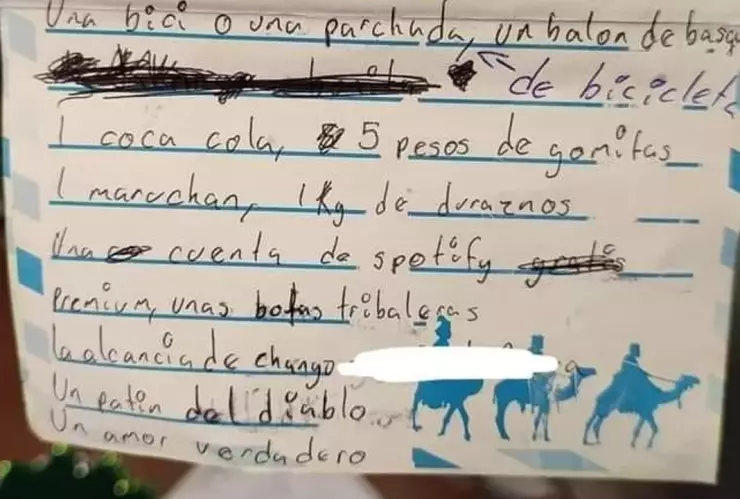 Una bici o una parchada, un balon de basq
de bicicleta
1 coca cola, 5 pesos de gomitas
1 maruchan, 1 Kg de duraznos
Una cuenta de spotify gratis
Premium, unas botas tribaleras
la alcancia de chango
Un patin del diablo
Un amor verdadero